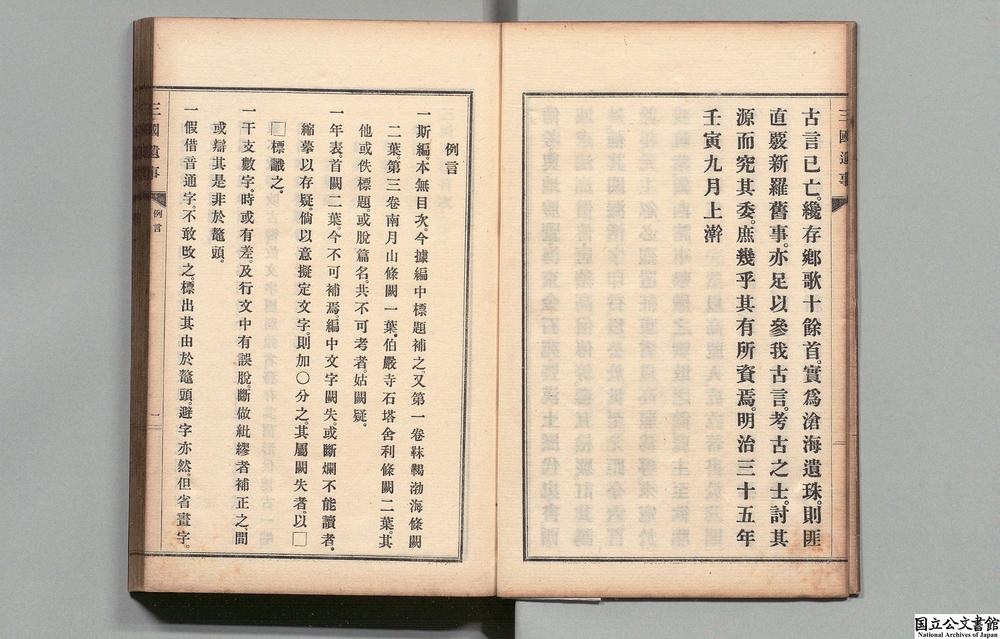 三國遺事
古言已亡。纔存鄉歌十餘首。實爲滄海遺珠。則匪
直嚴新羅舊事。亦足以參我古言。考古之士。討其
源而究其委。庶幾乎其有所資焉。明治三十五年
壬寅九月上澣
例言
一斯編。本無目次。今據編中標題補之。又第一卷靺鞨渤海條闕
二葉。第三卷南月山條闕一葉。伯嚴寺石塔舍利條闕二葉。其
他或佚標題。或脫篇名。共不可考者。姑闕疑。
一年表。首闕二葉。今不可補焉。編中文字闕失。或斷爛不能讀者。
縮摹以存疑。倘以意擬定文字。則加〇分之。其屬闕失者。以□
□標識之。
一干支數字。時或有差。及行文中有誤脫。斷做紕繆者補正之。間
或辯其是非於鼇頭。
一假借音通字。不敢改之。標出其由於鼇頭。避字亦然。但省畫字。
三國遺事
例言
一
国立公文書館
National Archives of Japan